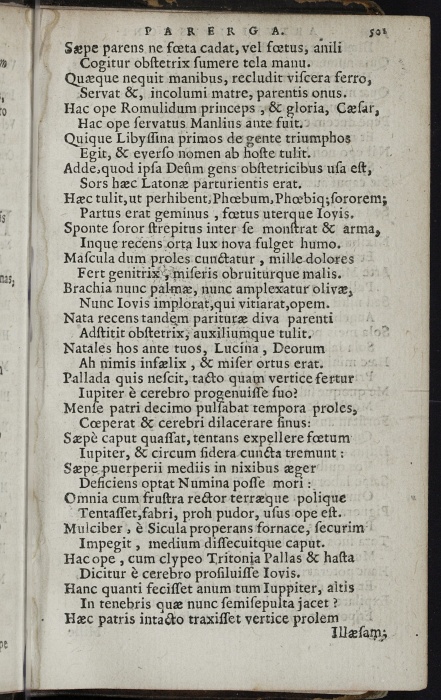 PARERGA. 501
Sæpe parens ne fœta cadat, vel fœtus, anili
Cogitur obſtetrix ſumere tela manu.
Quæque nequit manibus, recludit viſcera ferro,
Servat &, incolumi matre, parentis onus.
Hac ope Romulidum princeps, & gloria, Cæſar,
Hac ope ſervatus Manlius ante fuit.
Quique Libyſſina primos de gente triumphos
Egit, & everſo nomen ab hoſte tulit.
Adde, quod ipſa Deûm gens obſtetricibus uſa eſt,
Sors hæc Latonæ parturientis erat.
Hæc tulit, ut perhibent, Phœbum, Phœbiq; ſororem;
Partus erat geminus, fœtus uterque Iovis.
Sponte ſoror ſtrepitus inter ſe monſtrat & arma,
Inque recens orta lux nova fulget humo.
Maſcula dum proles cunctatur, mille dolores
Fert genitrix, miſeris obruiturque malis.
Brachia nunc palmæ, nunc amplexatur olivæ,
Nunc Iovis implorat, qui vitiarat, opem.
Nata recens tandem parituræ diva parenti
Adſtitit obſtetrix, auxiliumque tulit.
Natales hos ante tuos, Lucina, Deorum
Ah nimis infælix, & miſer ortus erat.
Pallada quis neſcit, tacto quam vertice fertur
Iupiter è cerebro progenuiſſe ſuo?
Menſe patri decimo pulſabat tempora proles,
Cœperat & cerebri dilacerare ſinus:
Sæpè caput quaſſat, tentans expellere fœtum
Iupiter, & circum ſidera cuncta tremunt:
Sæpe puerperii mediis in nixibus æger
Deficiens optat Numina poſſe mori:
Omnia cum fruſtra rector terræque polique
Tentaſſet, fabri, proh pudor, uſus ope eſt.
Mulciber, è Sicula properans fornace, ſecurim
Impegit, medium diſſecuitque caput.
Hac ope, cum clypeo Tritonia Pallas & haſta
Dicitur è cerebro proſiluiſſe Iovis.
Hanc quanti feciſſet anum tum Iuppiter, altis
In tenebris quæ nunc ſemiſepulta jacet?
Hæc patris intacto traxiſſet vertice prolem
Illæſam;